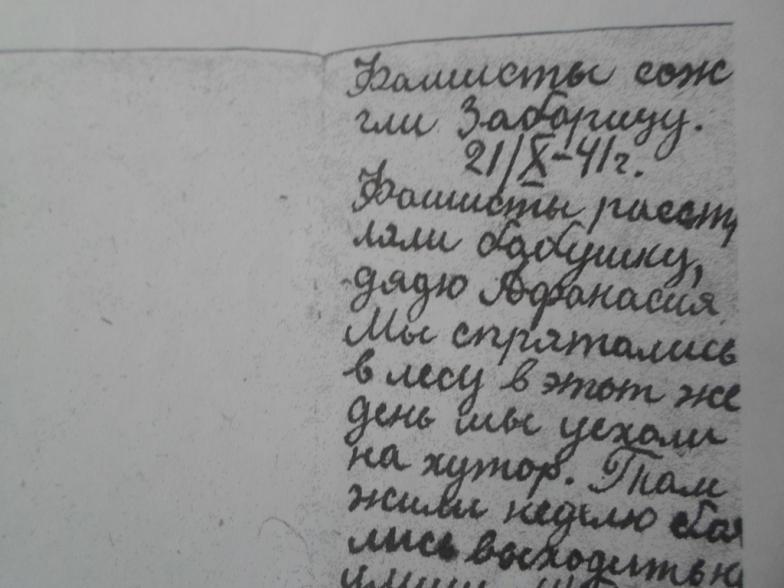 Фашисты сож
гли Заборицу.
21/X-41г.
Фашисты расст
ляли бабушку,
дядю Афанасия
Мы спрятались
в лесу в этот же
день мы уехали
на хутор. Там
жили неделю боя
лись выходить н